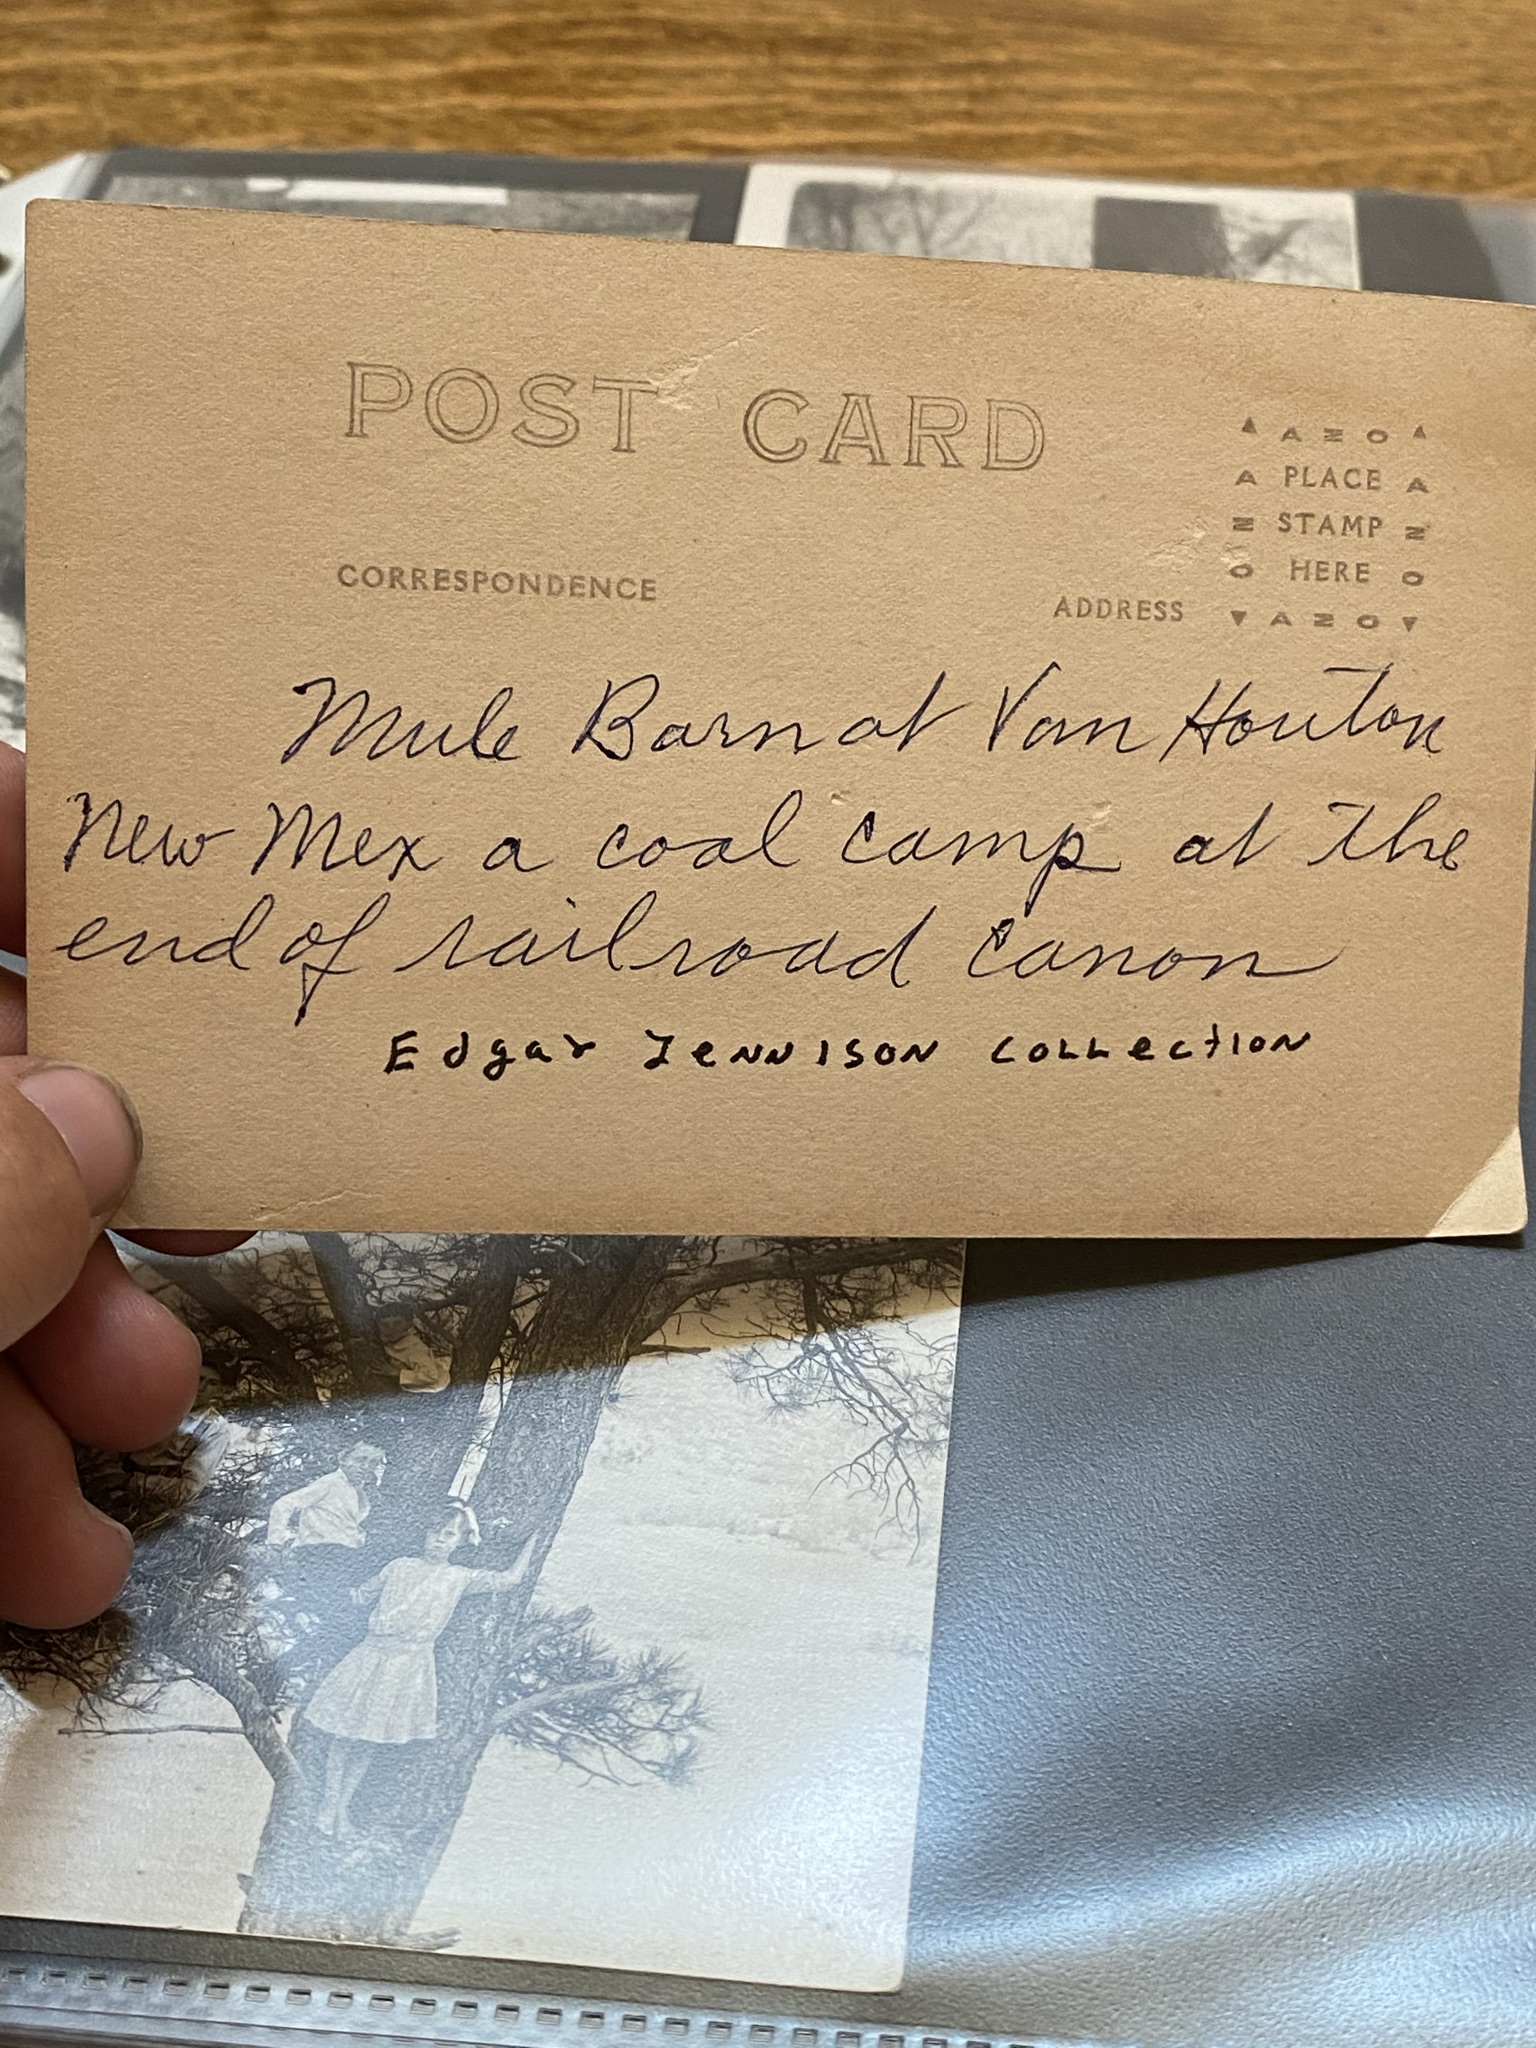 POST CARD
▲ AZO ▲
A PLACE A
Z STAMP Z
O HERE O
▼ AZO ▼
CORRESPONDENCE
ADDRESS
Mule Barn at Van Houton
New Mex a coal camp at the
end of railroad Canon
Edgar Jennison collection